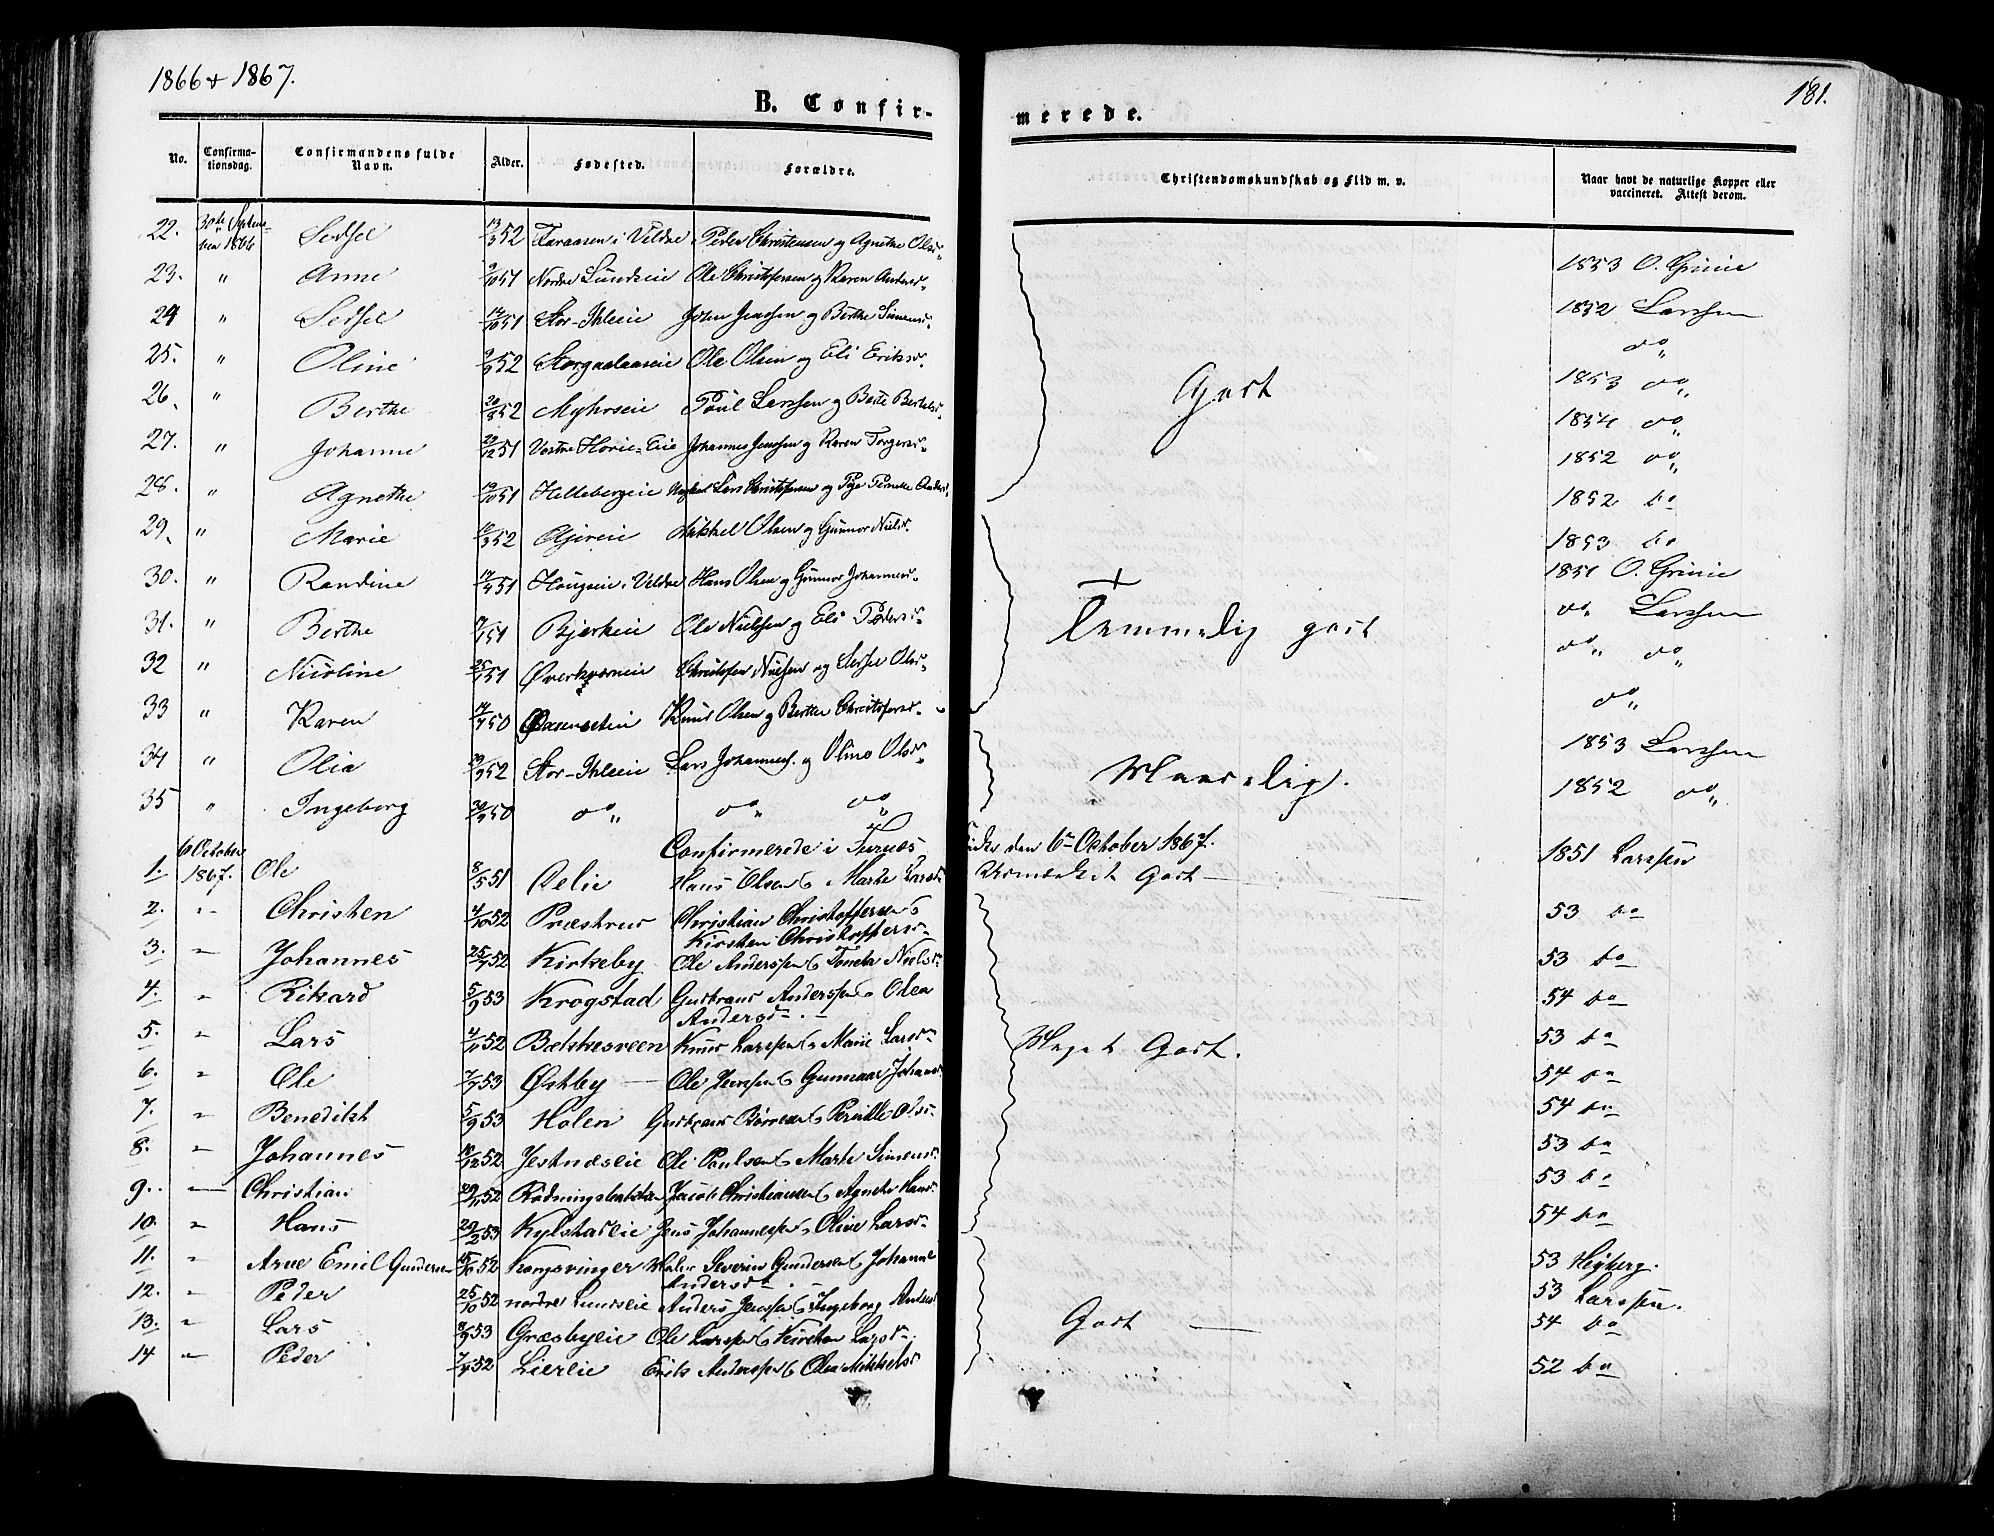 1866 & 1867.
181.
B. Confir-
merede.
No. Confirma-tionsdag. Confirmandens fulde Navn. Alder. Fødested. Forældre. Christendomskundskab og Flid m. v. Naar havt de naturlige Kopper eller vaccineret. Attest derom.
22. 30te Septem- 1866 Sedsel 13/3 52 i Veldre Peder Christensen og Agnethe Olsd. 1853 O. Grinie
23. " Anne 9/10 51 Nordre Lundseie Ole Christophersen og Karen Andersd.
24 " Sedsel /10 51 Stor-Ihleeie Johan Jensen og Berthe Simensd. 1852 Larssen
25. " Oline 52 Ole Olsen og Eli Eriksd. do
26. " Berthe 20/8 52 Myhrseie Poul Larssen og Berte 1853 do
27. " Johanne /12 51 Vestre Hovie-Eie Johannes Jenssen og Karen Torgersd. 1854 do
28. " Agnethe /10 51 Hellebergeie Lars Christophersen og Pige Pernille 1852 do
Godt
29. " Marie /3 52 Mikkel Olsen og Gunnor Nielsd. 1852 do
30. " Randine 51 Haugseie i Veldre Hans Olsen og Gunnor Johannesd. 1853 do
31. " Berthe 51 Bjerkeie Ole Nielssen og Eli Pedersd. 1851 O. Grinie
32 " Nicoline 25/1 51 Øverkværneie Christofer Nielsen og Sedsel Olsd. do Larssen
33 " Karen 50 Knud Olsen og Berthe Christofersd. do do
Temmelig godt
34 " Olia 52 Stor-Ihleeie Lars Johannes. og Oline Olsd. 1853 Larssen
35 " Ingeborg 50 do do do 1852 do
Maadelig.
Confirmerede i Furnes Kirke den 6te October 1867.
1. 6 October 1867. Ole 8/5 51 Delie Hans Olsen & Marte Larsd. Udmærket Godt 1851 Larssen
2. " Christen 4/10 52 Præstrud Christian Christoffersen & Kirsten Christoffersd. 53 do
3. " Johannes 25/7 52 Kirkeby Ole Anderssen & Tonetta Nielsd. 53 do
4. " Rikard 5/9 53 Krogstad Gudbrand Anderssen & Olea Andersd. 54 do
5. " Lars 4/11 52 Knud Larssen & Marie Larsd. 53 do
Meget Godt.
6. " Ole 7/7 53 Østby Ole Jenssen & Gunnaar Johansd. 54 do
7. " Benedikt 5/9 53 Holen Gudbrand & Pernille Olsd. 54 do
8. " Johannes /12 52 Jestnæseie Ole Poulsen & Marte Simensd. 53 do
9. " Christian 52 Jacob Christiansen & Agnete Hansd. 53 do
10. " Hans 20/2 53 Kylstadeie Jens Johannessen & Oline Larsd. 54 do
11. " Arne Emil Gundersen /10 52 Kongsvinger Severin Gundersen & Johanne Andersd. 53 Høyberg.
12. " Peder 25/10 52 nordre Lundseie Anders Jenssen & Ingeborg Andersd. 53 Larssen.
13. " Lars 8/9 53 Græsbyeie Ole Larssen & Kirsten Larsd. 54 do
14 " Peder 52 Liereie Erik Anderssen & Olea Mikkelsd. 52 do
Godt